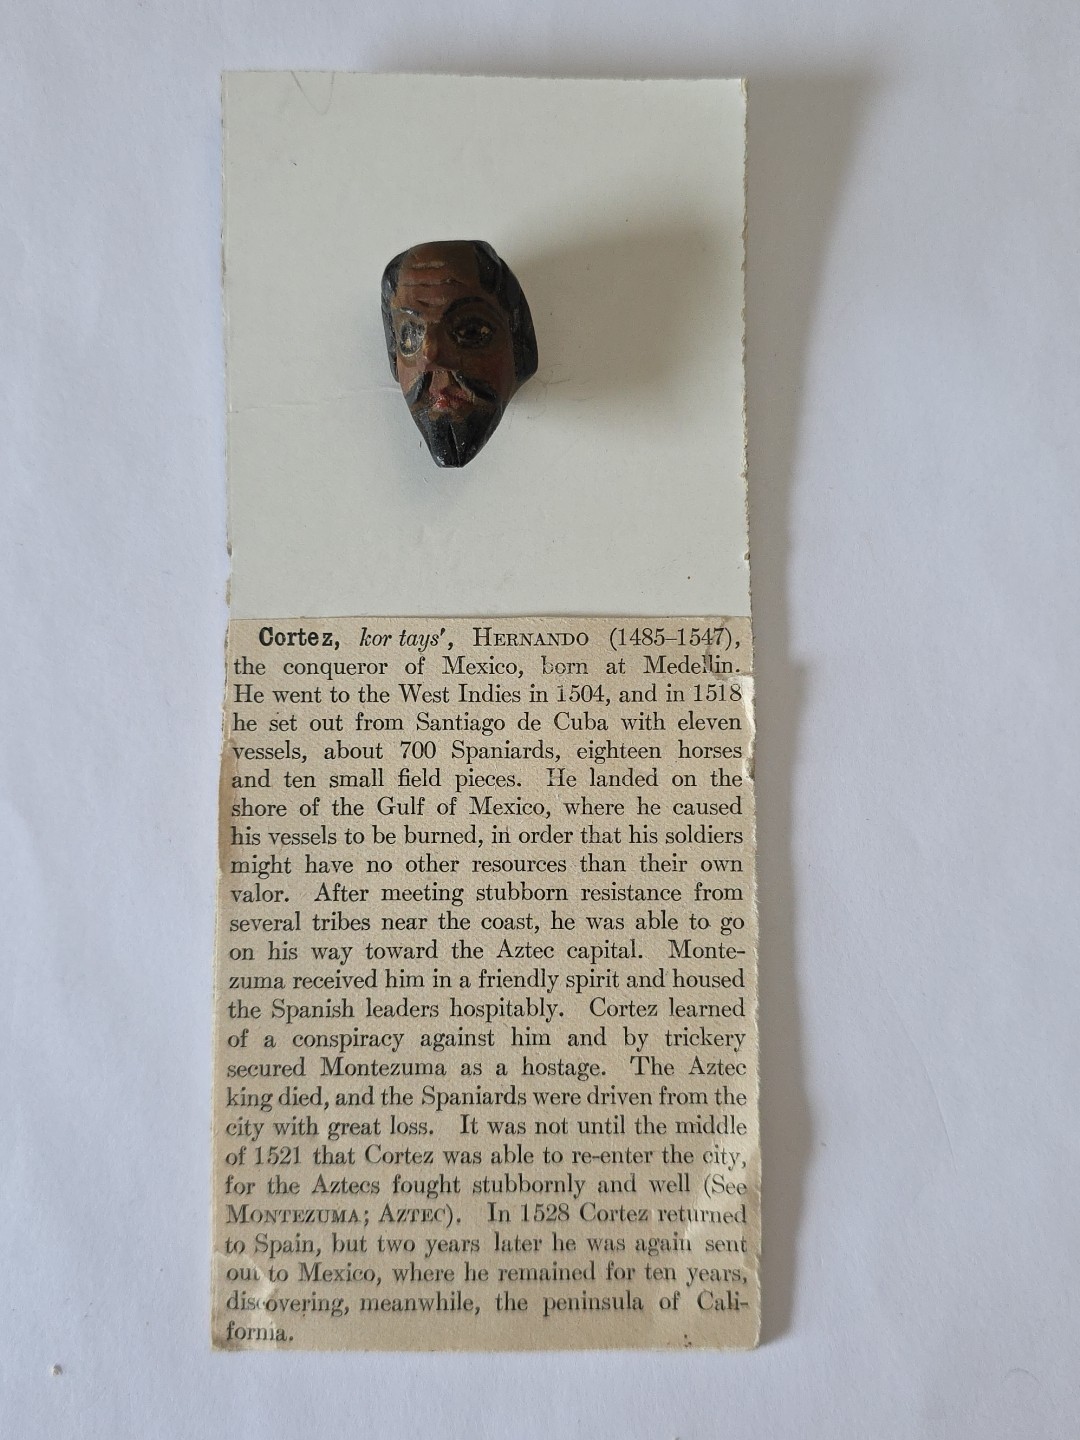 Cortez, kor tays′, HERNANDO (1485–1547),
the conqueror of Mexico, born at Medellin.
He went to the West Indies in 1504, and in 1518
he set out from Santiago de Cuba with eleven
vessels, about 700 Spaniards, eighteen horses
and ten small field pieces. He landed on the
shore of the Gulf of Mexico, where he caused
his vessels to be burned, in order that his soldiers
might have no other resources than their own
valor. After meeting stubborn resistance from
several tribes near the coast, he was able to go
on his way toward the Aztec capital. Monte-
zuma received him in a friendly spirit and housed
the Spanish leaders hospitably. Cortez learned
of a conspiracy against him and by trickery
secured Montezuma as a hostage. The Aztec
king died, and the Spaniards were driven from the
city with great loss. It was not until the middle
of 1521 that Cortez was able to re-enter the city,
for the Aztecs fought stubbornly and well (See
MONTEZUMA; AZTEC). In 1528 Cortez returned
to Spain, but two years later he was again sent
out to Mexico, where he remained for ten years,
discovering, meanwhile, the peninsula of Cali-
fornia.